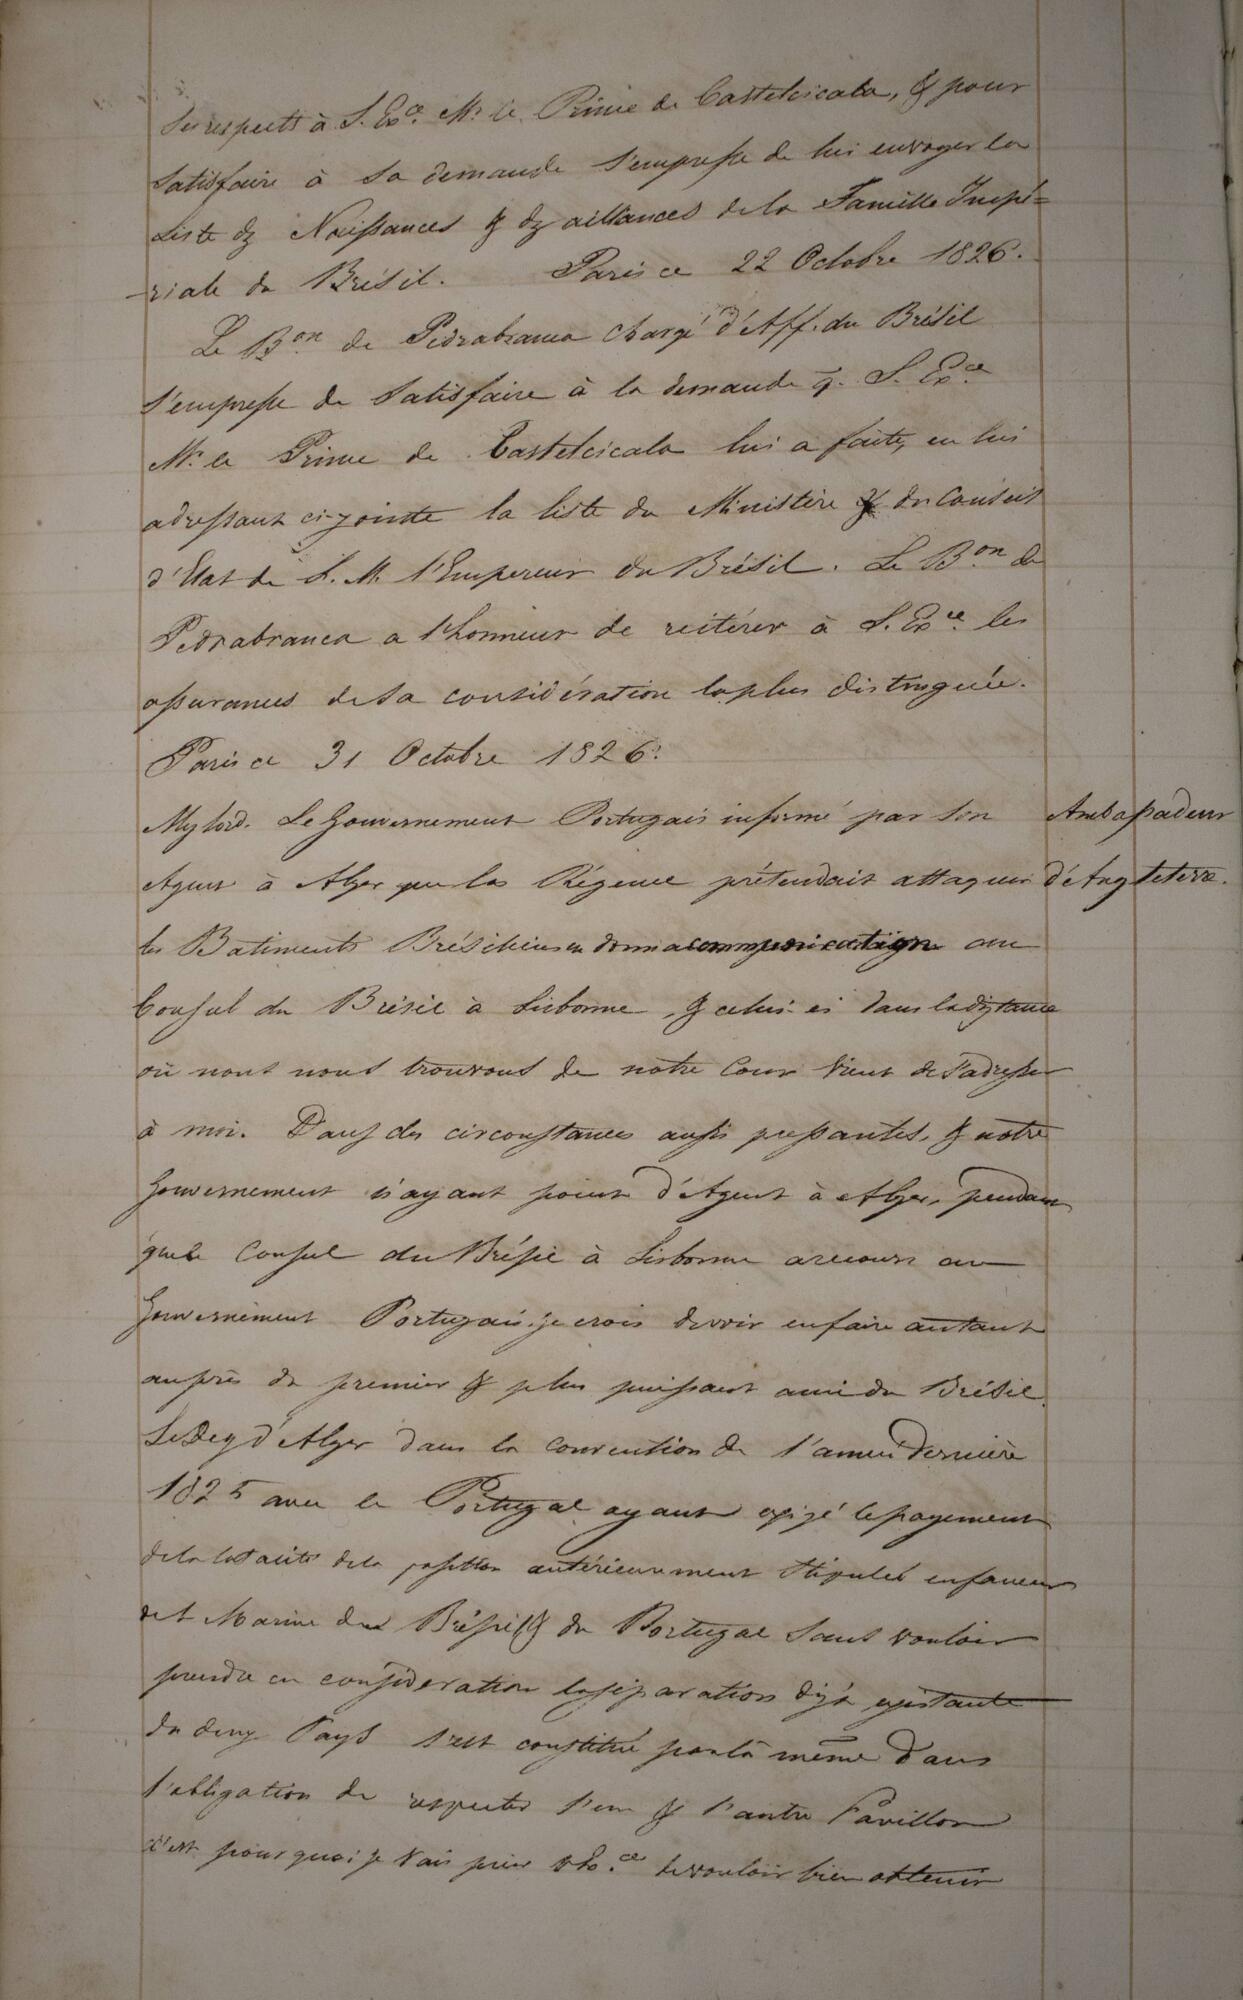 ses respects à S. Exce. Mr. le Prince de Castelcicala, & pour
satisfaire à sa demande s'empresse de lui envoyer la
Liste des Naissances & des alliances de la Famille Impé=
-riale du Brésil. Paris ce 22 Octobre 1826.
Le Bon. de Pedrabranca Chargé d'Aff. du Brésil
s'empresse de satisfaire à la demande q. S. Exce
Mr. le Prince de Castelcicala lui a faite, en lui
adressant ci-jointe la liste du Ministère & du Conseil
d'Etat de S. M. l'Empereur du Brésil. Le Bon. de
Pedrabranca a l'honneur de reitérer à S. Exce. les
assurances de sa considération la plus distinguée.
Paris ce 31 Octobre 1826.
Mylord. Le Gouvernement Portugais informé par son
Agent à Alger que la Régence prétendait attaquer
les Batiments Brésiliens en donna communication au
Consul du Brésil à Lisbonne, & celui-ci dans la distance
où nous nous trouvons de notre Cour vient de s'adresser
à moi. Dans des circonstances aussi pressantes, & notre
Gouvernement n'ayant point d'Agent à Alger, pendant
que le Consul du Brésil à Lisbonne a recours au
Gouvernement Portugais, je crois devoir en faire autant
auprès du premier & plus puissant ami du Brésil.
Le Dey d'Alger dans la convention de l'année dernière
1825 avec le Portugal ayant exigé le payement
de la totalité de la antérieurement stipulée en faveur
de Marine du Brésil & du Portugal sans vouloir
prendre en considération la séparation déjà existante
du deux Pays s'est constitué par là même dans
l'obligation de respecter l'un & l'autre Pavillon
c'est pourquoi je vais prier V. Exce. de vouloir bien obtenir
Ambassadeur
d'Angleterre.